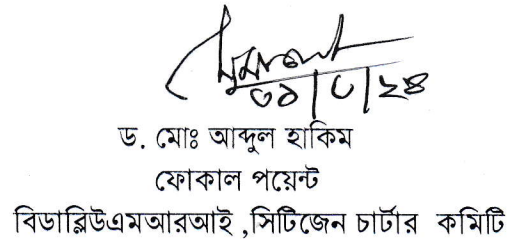 ড. মোঃ আব্দুল হাকিম
ফোকাল পয়েন্ট
বিডাব্লিউএমআরআই ,সিটিজেন চার্টার কমিটি